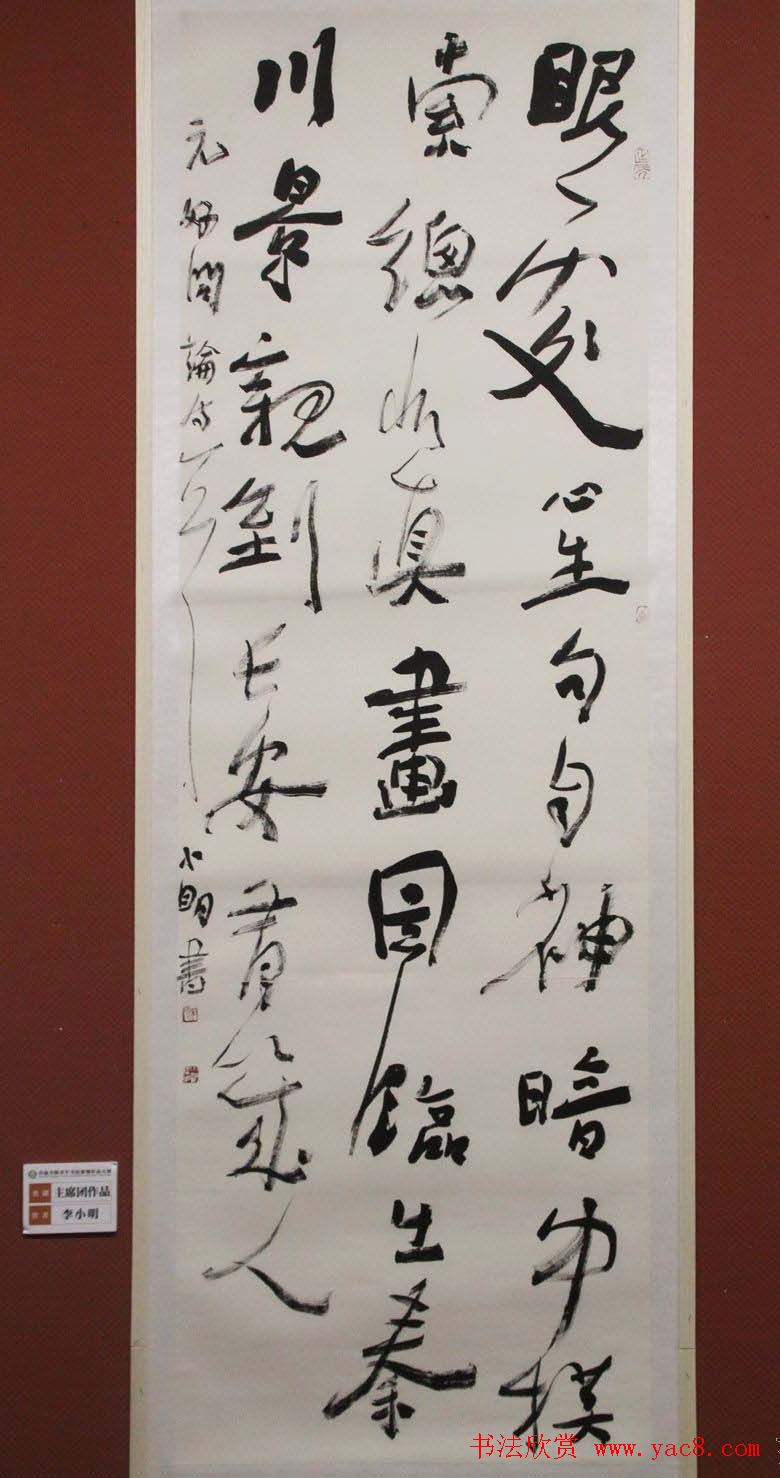 眼處心生句自神暗中摸
索總非真畫圖臨出秦
川景親到長安有幾人
元好問論詩一首 小明書
主席团作品
李小明
书法欣赏 www.yac8.com